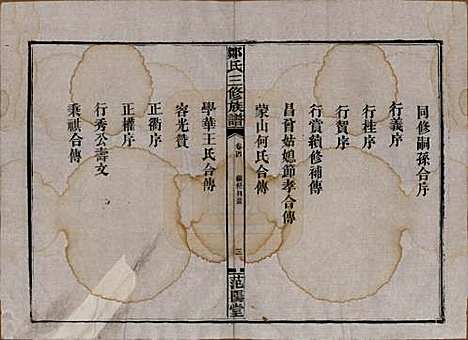 同修嗣孫合序
行義序
行桂序
行賀序
行賞續修補傳
昌宵姑媳節孝合傳
蒙山何氏合傳
鄒氏三修族譜
卷首
三
范陽堂
學華王氏合傳
容光贊
正衢序
正權序
行秀公壽文
秉祺合傳